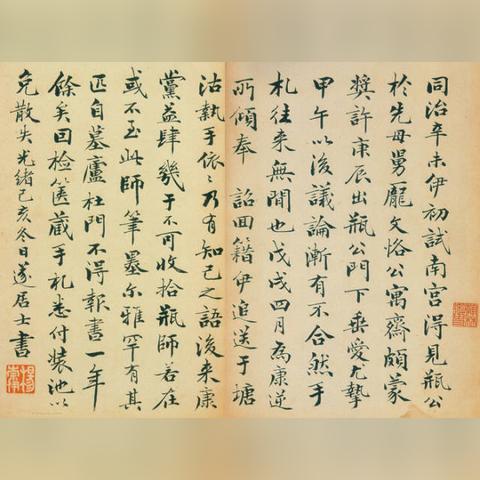 同治辛未伊初試南宮得見瓶公
於先母舅龎文恪公寓齋頗蒙
奬許庚辰出瓶公門下乗愛尤摯
甲午以後議論漸有不合然手
札往来無間也戊戌四月為康逆
所傾奉 詔回籍伊追送于塘
沽執手依〻乃有知己之語後来康
黨益肆幾于不可收拾瓶師若在
或不至此師筆墨尔雅罕有其
匹自墓廬杜門不得報書一年
餘矣因檢篋藏手札悉付装池以
免散失光緒己亥冬日遂居士書